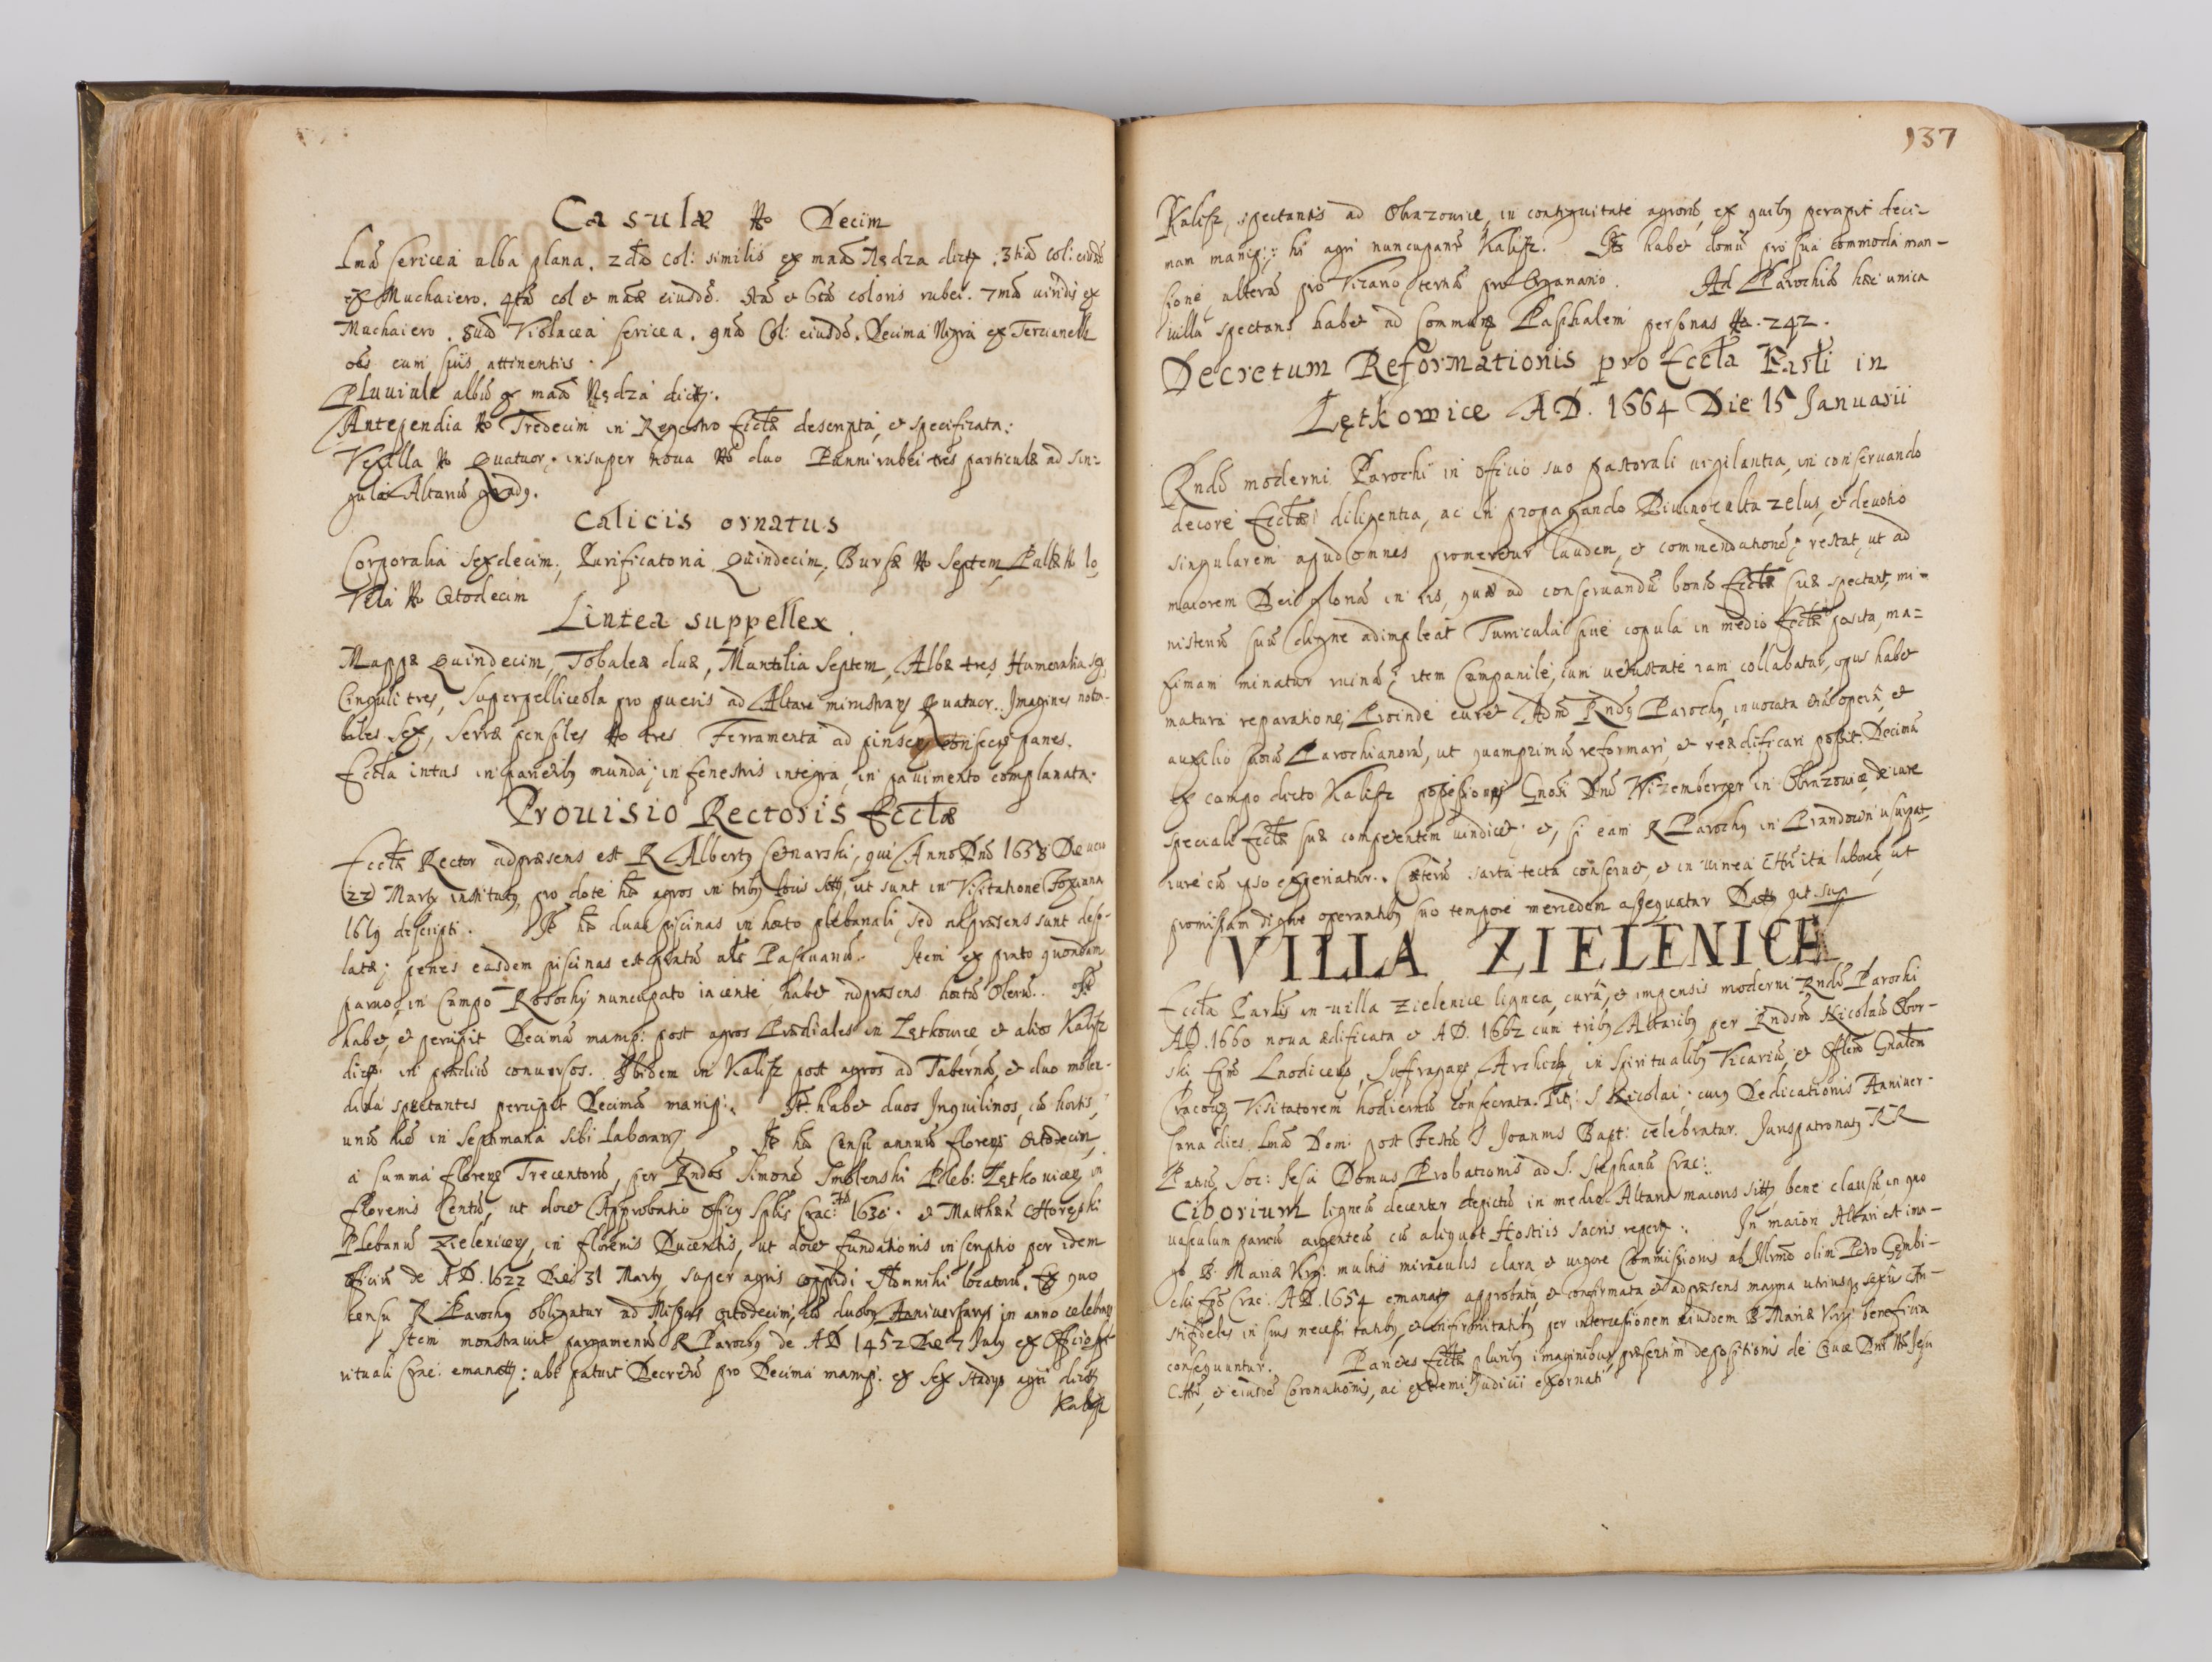 Casulæ No Decim
Imã sericea alba plana. 2dã col: similis ex maã Nędza dictæ. 3tiã col: eiusdẽ
ex Muchaiero. 4tã col et maæ eiusdẽ. 5tã et 6tã coloris rubei. 7mã viridis ex
Muchaiero. 8uã Violacea sericea. 9nã Col: eiusdẽ. Decima Nigra ex Tercianell
oẽs cum suis attinentiis.
Pluviale albũ ex maã Nędza dictæ.
Antependia No Tredecim in Regestro Eccłæ descripta, et specificata:
Vexilla No Quatuor; insuper nova No duo Panni rubei tres particulæ ad sin-
gula Altariũ gradꝰ.
Calicis ornatus
Corporalia Sexdecim, Purificatoria Quindecim, Bursæ No Septem, Pallæ No 10
Vela No Octodecim
Lintea suppellex
Mappæ Quindecim, Tobaleæ duæ, Mantilia Septem, Albæ tres, Humeralia sex,
Cinguli tres, Superpelliceola pro pueris ad Altare ministrans Quatuor. Imagines nota-
biles Sex, Serræ pensiles No tres. Ferramenta ad pinsen
Eccła intus in parietibꝰ munda; in fenestris integra, in pavimento complanata.
Provisio Rectoris Eccłæ
Eccłæ Rector adpræsens est R Albertꝰ Cenarski, qui Anno Dnĩ 1658 Die vero
22 Martÿ institutꝰ, pro dote hẽt agros in tribꝰ locis sittꝰ, ut sunt in Visitatione Foxiana
1619 descripti. Itẽ hẽt duas piscinas in horto plebanali, sed adpræsens sunt deso-
latæ; penes easdem piscinas est pratũ als Pastwanũ. Item ex prato quondam
parvo, in Campo Rosochÿ nuncupato iacente habet adpræsens hortũ Olerũ. Itẽ
habet, et percipit Decimã manip: post agros Prædiales in Lętkowice, et alios Kalisz
dictos in prædiũ conversos. Ibidem in Kalisz post agros ad Tabernã, et duo molen-
dina spectantes percipit Decimã manip: It. habet duos Inquilinos, cũ hortis,
unũ diẽ in Septimana sibi laborans. Itẽ hẽt Censũ annuũ florens Octodecim,
a summa florens Trecentorũ, per Rndos Simonẽ Smolenski Pleb: Lętkovicen in
florenis Centũ, ut docet Approbatio Officÿ Spłis Crac: AD 1630. et Matthæũ Choręski
Plebanũ Zielenicens, in florenis Ducentis, ut docet fundationis inscriptio per idem
officiũ de AD. 1622 Die 31 Martÿ super agris oppidi Słomniki locatorũ. Ex quo
censu R Parochꝰ obligatur ad Missas octodecim, cũ duobꝰ Anniversarÿs in anno celebran
Item monstravit pargamenũ R Parochꝰ de AD 1452 Die 7 July ex Officio Spi-
rituali Crac: emanatũ: ubi patuit Decretũ pro Decima manip: ex sex stadÿs agri dicti
Kalisz
137
Kalisz, spectantis ad Obrazowice, in contiguitate agrorũ, ex quibꝰ percipit deci-
mam manip:; hi agri nuncupant Kalisz. Itẽ habet domũ pro sua commoda man-
sione, alterã pro Vicario, tertiã pro Organario. Ad Parochiã hæc unica
villa spectans habet ad Communẽ Paschalem personas No. 242.
Decretum Reformationis pro Eccła Parłi in
Lętkowice AD. 1664 Die 15 Januarii
Rndi moderni Parochi in officio suo pastorali vigilantia, in conservando
decore Eccłæ diligentia, ac in propagando Divino cultu zelus, et devotio
singularem apud omnes promeretur laudem, et commendationẽ; restat, ut ad
maiorem Dei gloriã in iis, quæ ad conservandũ bonũ Eccłæ suæ spectant, mi-
nisteriũ suũ digne adimpleat Turricula sive copula in medio Eccłæ posita, ma-
ximam minatur ruinã; item Campanile, cum vetustate iam collabatur, opus habet
matura reparatione; Proinde curet Admo Rndꝰ Parochꝰ, invocata etiã opera, et
auxilio suorũ Parochianorũ, ut quamprimũ reformari, et reædificari possit. Decimã
ex campo dicto Kalisz possessionis Gnosi Dni Witzemberger in Obrazowice, de iure
speciali Eccłæ suæ competentem vindicet; et, si eam R Parochꝰ in Prandocin usurpat,
iure cũ ipso experiatur. Cæterũ sarta tecta conservet, et in vinea Chri ita laboret, ut
promissam digne operantibꝰ suo tempore mercedem assequatur Dattꝰ ut sup
VILLA ZIELENICE
Eccła Parłis in villa Zielenice lignea, cura, et impensis moderni Rndi Parochi
AD. 1660 nova ædificata et AD. 1662 cum tribꝰ Altaribꝰ per Rndsm Nicolaũ Obor-
ski Epm Laodicens, Suffragans, Archidi, in Spiritualibꝰ Vicariũ, et Offlem Gnalem
Cracovs, Visitatorem hodiernũ consecrata. Tit: S Nicolai; cuiꝰ Dedicationis Anniver-
saria dies Imã Dom: post Festũ S Joannis Bapt: celebratur. Juris patronatꝰ RR
Patrũ Soc: Jesu Domus Probationis ad S. Stephanũ Crac:
Ciborium ligneũ decenter depictũ in medio Altaris maioris sittꝰ, bene clausũ, in quo
vasculum parvũ argenteũ cũ aliquot Hostiis sacris repertꝰ. In maiori Altari est ima-
go B. Mariæ Virg: multis miraculis clara et vigore Commissionis ab Illrmo olim Petro Gembi-
cki Epo Crac: AD. 1654 emanatæ approbata, et confirmata et adpræsens magna utriusqꝫ sexũs Chri-
stifideles in suis necessitatibꝰ, et infirmitatibꝰ per intercessionem eiusdem B. Mariæ Virg: beneficia
consequuntur. Parietes Eccłæ pluribꝰ imaginibus, præsertim depositionis de Cruce Dni Nri Jesu
Chri, et eiusdẽ Coronationis, ac extremi Judicii exornati